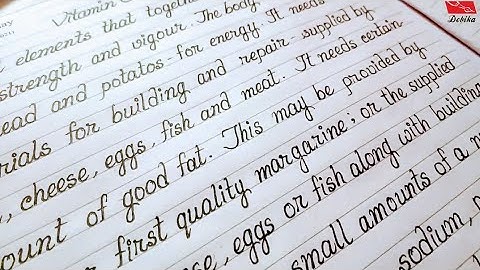 Vitamin
Debika
elements that togeth
strength and vigour. The body
ead and potatos-for energy. It needs
rials for building and repair-supplied by
, cheese, eggs, fish and meat. It needs certain
ount of good fat. This may be provided by
r first quality margarine; or the supplied
se, eggs or fish along with building
small amounts of a n
sodium,